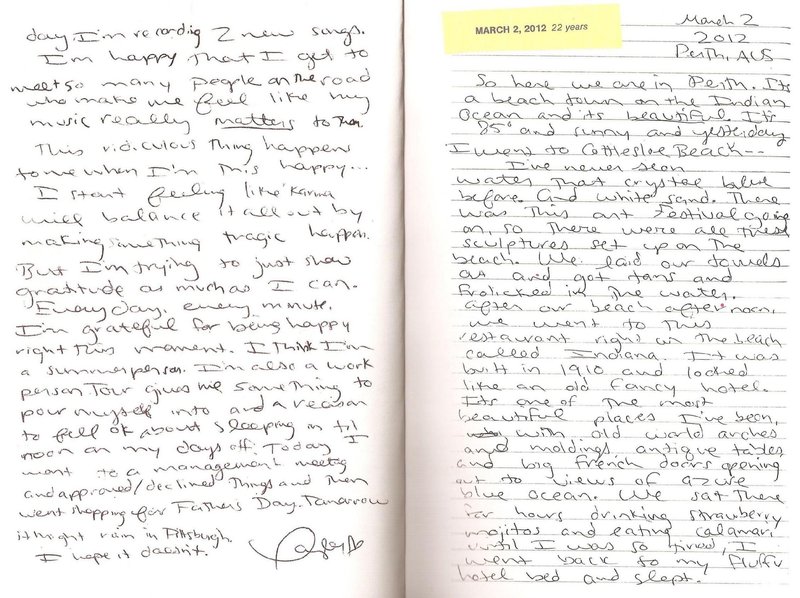 day, I'm recording 2 new songs.
I'm happy that I get to
meet so many people on the road
who make me feel like my
music really matters to them.
This ridiculous thing happens
to me when I'm this happy...
I start feeling like karma
will balance it all out by
making something tragic happen.
But I'm trying to just show
gratitude as much as I can.
Every day, every minute.
I'm grateful for being happy
right this moment. I think I'm
a summer person. I'm also a work
person. Tour gives me something to
pour myself into and a reason
to fell ok about sleeping in til
noon on my days off. Today I
went to a management meeting
and approved/declined things and then
went shopping for Fathers Day. Tomorrow
it might rain in Pittsburgh.
I hope it doesn't.
MARCH 2, 2012 22 years
March 2
2012
Perth, AUS
So here we are in Perth. Its
a beach town on the Indian
Ocean and its beautiful. It's
85° and sunny and yesterday
I went to Cottesloe Beach--
I've never seen
water that crystal blue
before. And white sand. There
was this art festival going
on, so there were all these
sculptures set up on the
beach. We laid our towels
out and got tans and
frolicked in the water.
After our beach afternoon,
we went to this
restaurant right on the beach
called Indiana. It was
built in 1910 and looked
like an old fancy hotel.
Its one of the most
beautiful places I've been,
with old world arches
and moldings, antique tables
and big french doors opening
out to views of azure
blue ocean. We sat there
for hours drinking strawberry
mojitos and eating calamari
until I was so tired, I
went back to my fluffy
hotel bed and slept.